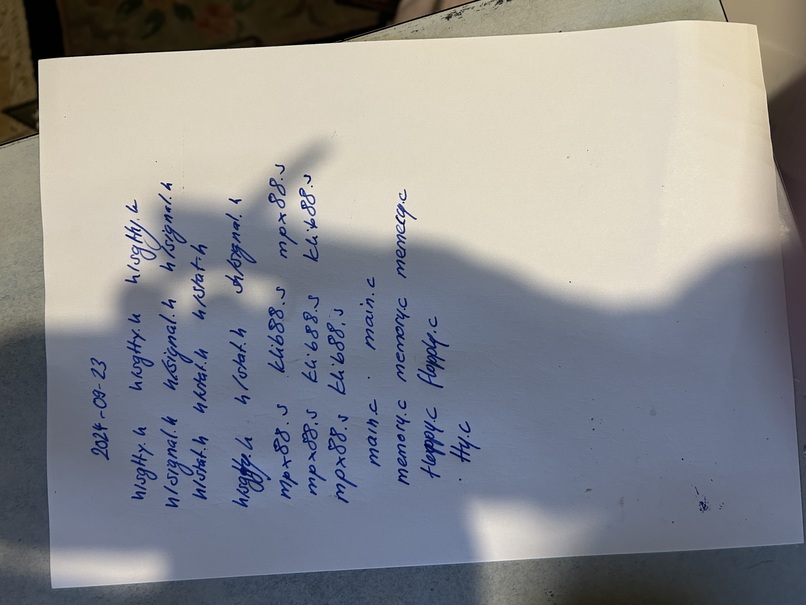 2024-09-23
h/sgtty.h h/sgtty.h h/sgtty.h
h/signal.h h/signal.h h/signal.h
h/stat.h h/stat.h h/stat.h
h/sgtty.h h/stat.h h/signal.h
mpx88.s klib88.s mpx88.s
mpx88.s klib88.s klib88.s
mpx88.s klib88.s
main.c main.c
memory.c memory.c memory.c
floppy.c floppy.c
tty.c